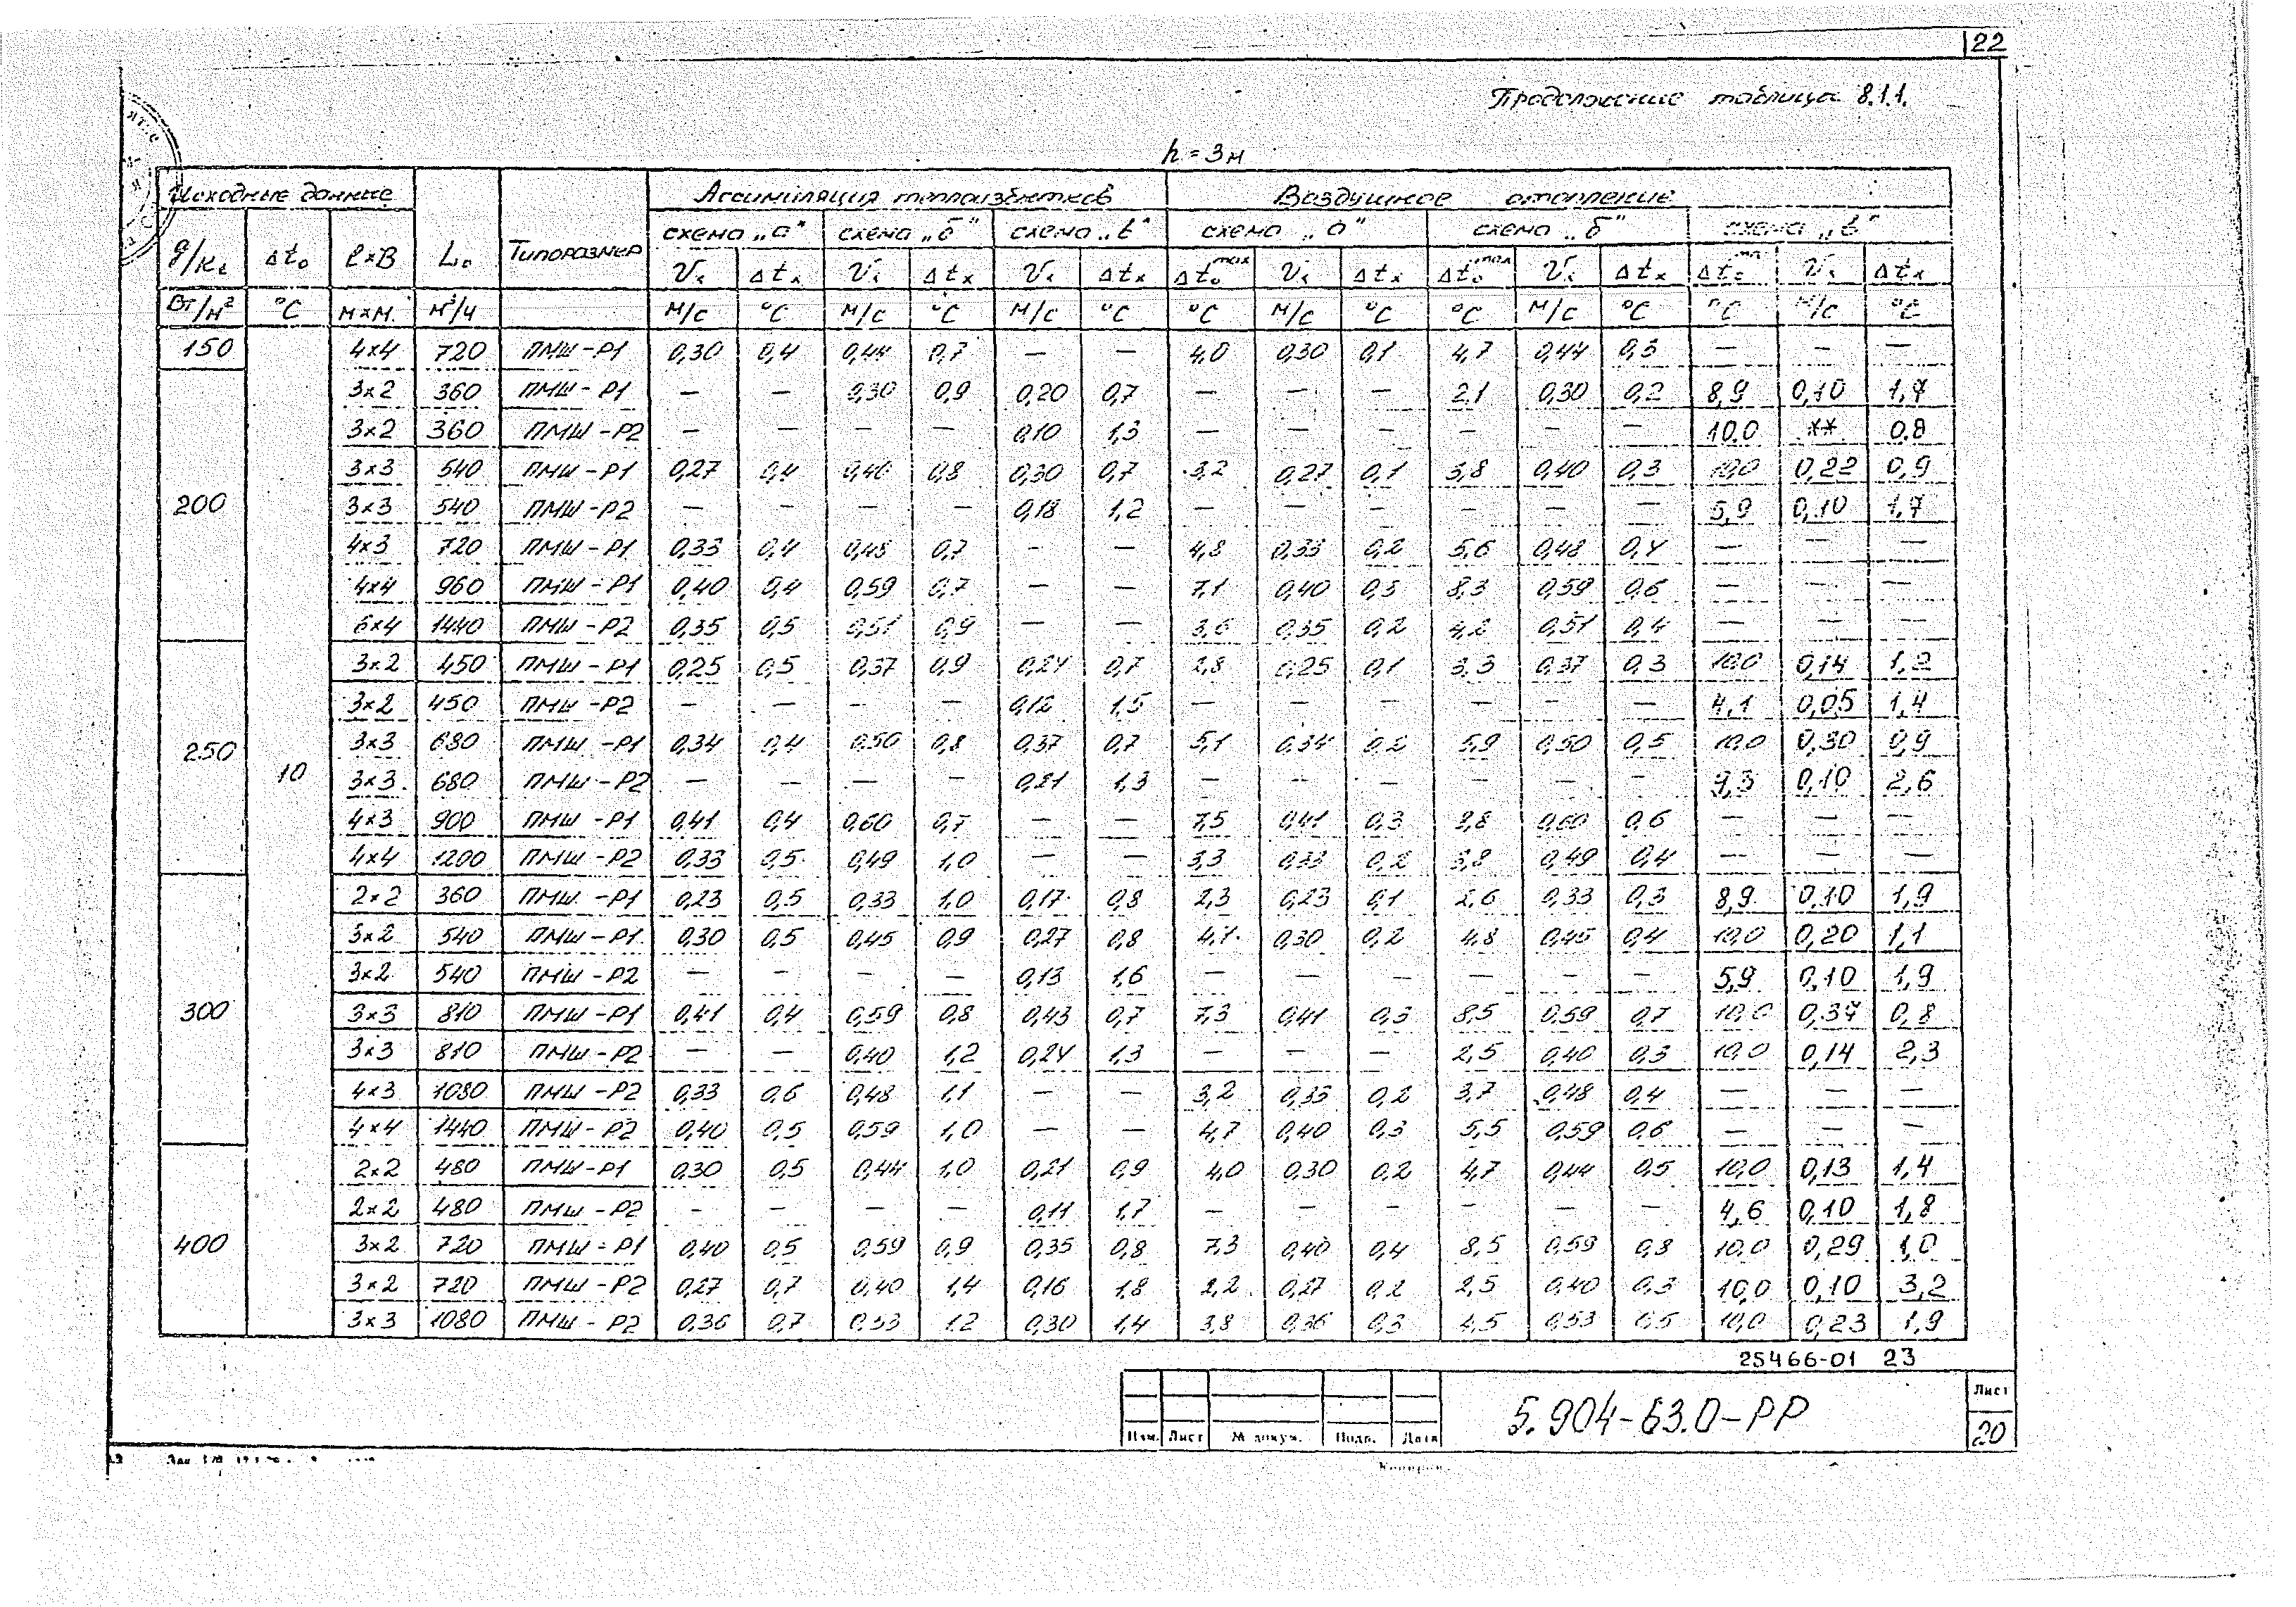 22
Продолжение таблица 8.1.1.
h = 3м
Исходные данные Ассимиляция теплоизбытков Воздушное отопление
q/кг Δt₀ ℓ×B L₀ Типоразмер схема „а" схема „б" схема „в" схема „а" схема „б" схема „в"
Vₓ Δtₓ Vₓ Δtₓ Vₓ Δtₓ Δt₀max Vₓ Δtₓ Δt₀max Vₓ Δtₓ Δt₀ Vₓ Δtₓ
Вт/м² °C м×м. м³/ч м/с °C м/с °C м/с °C °C м/с °C °C м/с °C °C м/с °C
150 4×4 720 ПМШ-Р1 0,30 0,4 0,44 0,7 — — 4,0 0,30 0,1 4,7 0,44 0,3 — — —
3×2 360 ПМШ-Р1 — — 0,30 0,9 0,20 0,7 — — — 2,1 0,30 0,2 8,9 0,10 1,7
3×2 360 ПМШ-Р2 — — — — 0,10 1,3 — — — — — — 10.0 ** 0.8
3×3 540 ПМШ-Р1 0,27 0,4 0,40 0,8 0,30 0,7 3,2 0,27 0,1 3,8 0,40 0,3 10,0 0,22 0,9
200 3×3 540 ПМШ-Р2 — — — — 0,18 1,2 — — — — — — 5,9 0,10 1,7
4×3 720 ПМШ-Р1 0,33 0,4 0,48 0,7 — — 4,8 0,33 0,2 5,6 0,48 0,4 — — —
4×4 960 ПМШ-Р1 0,40 0,4 0,59 0,7 — — 7,1 0,40 0,3 8,3 0,59 0,6 — — —
6×4 1440 ПМШ-Р2 0,35 0,5 0,51 0,9 — — 3,6 0,35 0,2 4,2 0,51 0,4 — — —
3×2 450 ПМШ-Р1 0,25 0,5 0,37 0,9 0,24 0,7 2,8 0,25 0,1 3,3 0,37 0,3 10,0 0,14 1,2
3×2 450 ПМШ-Р2 — — — — 0,12 1,5 — — — — — — 4,1 0,05 1,4
250 3×3 680 ПМШ-Р1 0,34 0,4 0,50 0,8 0,37 0,7 5,1 0,34 0,2 5,9 0,50 0,5 10,0 0,30 0,9
10 3×3 680 ПМШ-Р2 — — — — 0,21 1,3 — — — — — — 9,3 0,10 2,6
4×3 900 ПМШ-Р1 0,41 0,4 0,60 0,7 — — 7,5 0,41 0,3 8,8 0,60 0,6 — — —
4×4 1200 ПМШ-Р2 0,33 0,5 0,49 1,0 — — 3,3 0,33 0,2 3,8 0,49 0,4 — — —
2×2 360 ПМШ-Р1 0,23 0,5 0,33 1,0 0,17 0,8 2,3 0,23 0,1 2,6 0,33 0,3 8,9 0,10 1,9
3×2 540 ПМШ-Р1 0,30 0,5 0,45 0,9 0,27 0,8 4,1 0,30 0,2 4,8 0,45 0,4 10,0 0,20 1,1
3×2 540 ПМШ-Р2 — — — — 0,13 1,6 — — — — — — 5,9 0,10 1,9
300 3×3 810 ПМШ-Р1 0,41 0,4 0,59 0,8 0,43 0,7 7,3 0,41 0,3 8,5 0,59 0,7 10,0 0,37 0,8
3×3 810 ПМШ-Р2 — — 0,40 1,2 0,24 1,3 — — — 2,5 0,40 0,3 10,0 0,14 2,3
4×3 1080 ПМШ-Р2 0,33 0,6 0,48 1,1 — — 3,2 0,33 0,2 3,7 0,48 0,4 — — —
4×4 1440 ПМШ-Р2 0,40 0,5 0,59 1,0 — — 4,7 0,40 0,3 5,5 0,59 0,6 — — —
2×2 480 ПМШ-Р1 0,30 0,5 0,44 1,0 0,21 0,9 4,0 0,30 0,2 4,7 0,44 0,5 10,0 0,13 1,4
2×2 480 ПМШ-Р2 — — — — 0,11 1,7 — — — — — — 4,6 0,10 1,8
400 3×2 720 ПМШ-Р1 0,40 0,5 0,59 0,9 0,35 0,8 7,3 0,40 0,4 8,5 0,59 0,8 10,0 0,29 1,0
3×2 720 ПМШ-Р2 0,27 0,7 0,40 1,4 0,16 1,8 2,2 0,27 0,2 2,5 0,40 0,3 10,0 0,10 3,2
3×3 1080 ПМШ-Р2 0,36 0,7 0,53 1,2 0,30 1,4 3,8 0,36 0,3 4,5 0,53 0,5 10,0 0,23 1,9
25466-01 23
5.904-63.0-РР
Лист
20
Изм. Лист № докум. Подп. Дата